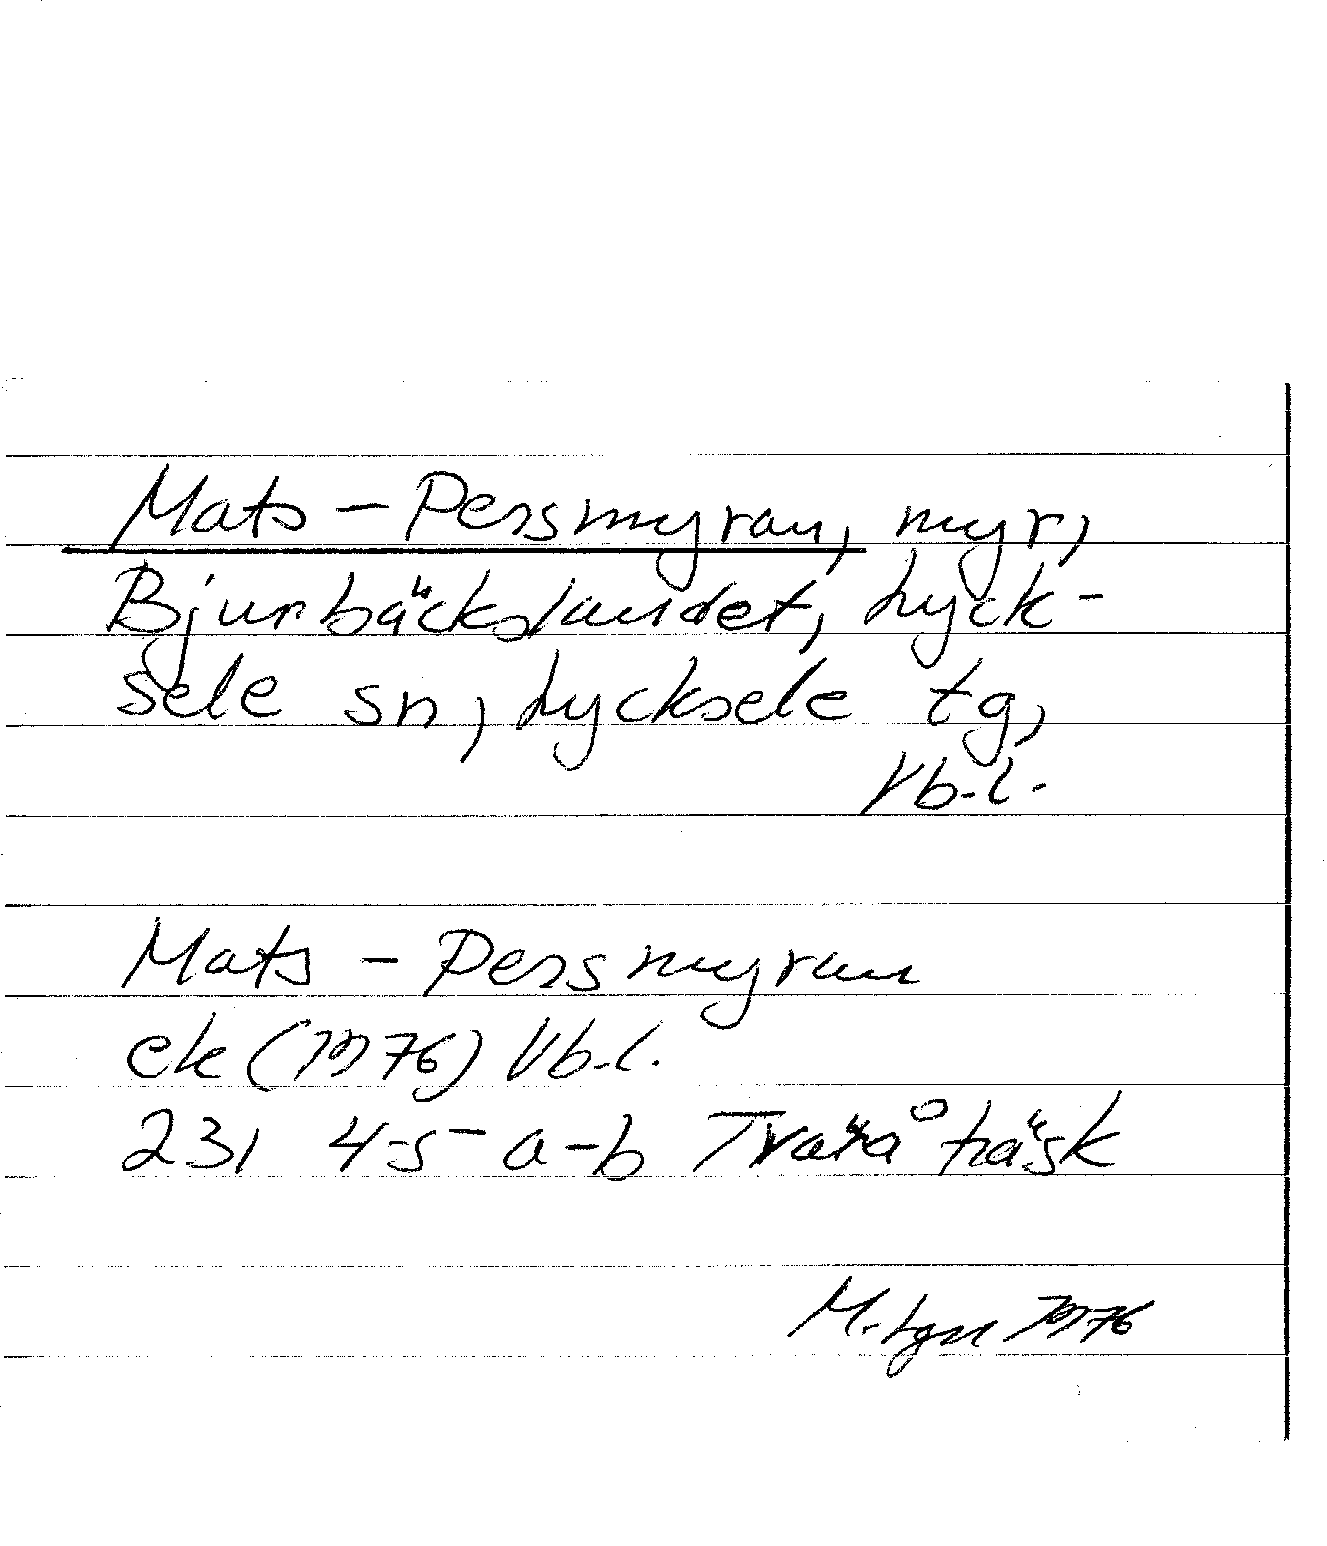 Mats-Persmyran, myr,
Bjurbäckslandet, Lyck-
sele sn, Lycksele tg,
Vb.l.
Mats-Persmyran
ek (1976) Vb.l.
231 4-5 a-b Tväråträsk
M. 1976